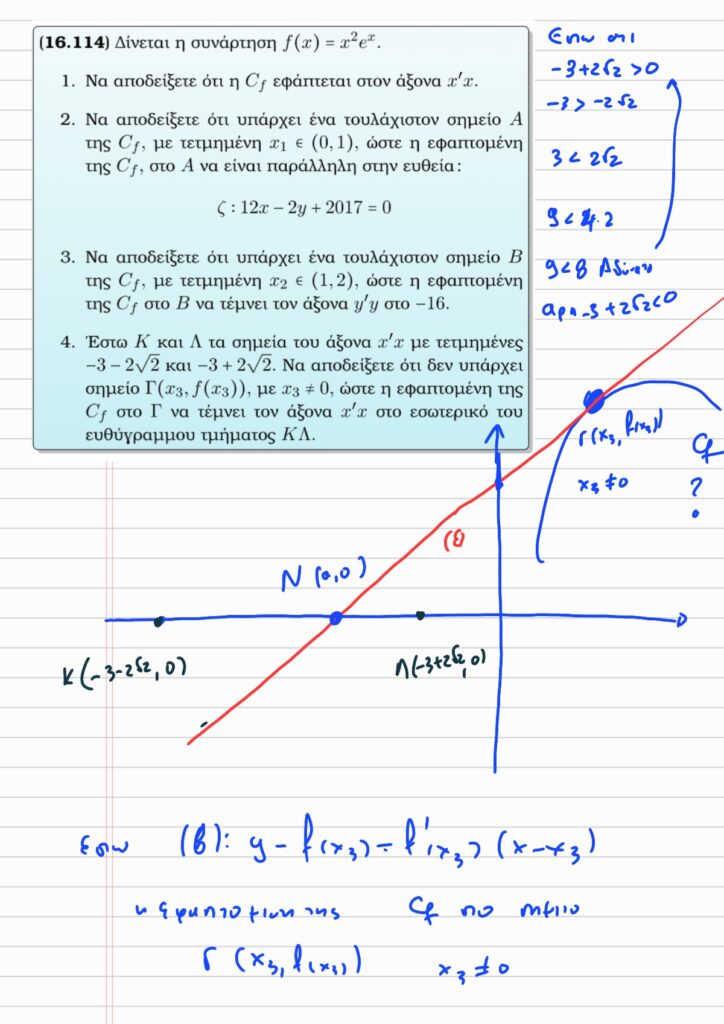 (16.114) Δίνεται η συνάρτηση f(x) = x²eˣ.
1. Να αποδείξετε ότι η C_f εφάπτεται στον άξονα x′x.
2. Να αποδείξετε ότι υπάρχει ένα τουλάχιστον σημείο A
της C_f, με τετμημένη x₁ ∈ (0, 1), ώστε η εφαπτομένη
της C_f, στο A να είναι παράλληλη στην ευθεία:
ζ : 12x − 2y + 2017 = 0
3. Να αποδείξετε ότι υπάρχει ένα τουλάχιστον σημείο B
της C_f, με τετμημένη x₂ ∈ (1, 2), ώστε η εφαπτομένη
της C_f στο B να τέμνει τον άξονα y′y στο −16.
4. Έστω K και Λ τα σημεία του άξονα x′x με τετμημένες
−3 − 2√2 και −3 + 2√2. Να αποδείξετε ότι δεν υπάρχει
σημείο Γ(x₃, f(x₃)), με x₃ ≠ 0, ώστε η εφαπτομένη της
C_f στο Γ να τέμνει τον άξονα x′x στο εσωτερικό του
ευθύγραμμου τμήματος KΛ.
Εστω οτι
-3+2√2 >0
-3 > -2√2
3 < 2√2
9 < 4.2
9<8
-3+2√2<0
Γ(x₃, f(x₃))
x₃ ≠0
Cf
?
(ε)
N (α,0)
K(-3-2√2, 0)
Λ(-3+2√2, 0)
Εστω (ε): y - f(x₃) = f'(x₃) (x-x₃)
η εφαπτομενη της Cf στο σημειο
Γ (x₃, f(x₃)) x₃ ≠0